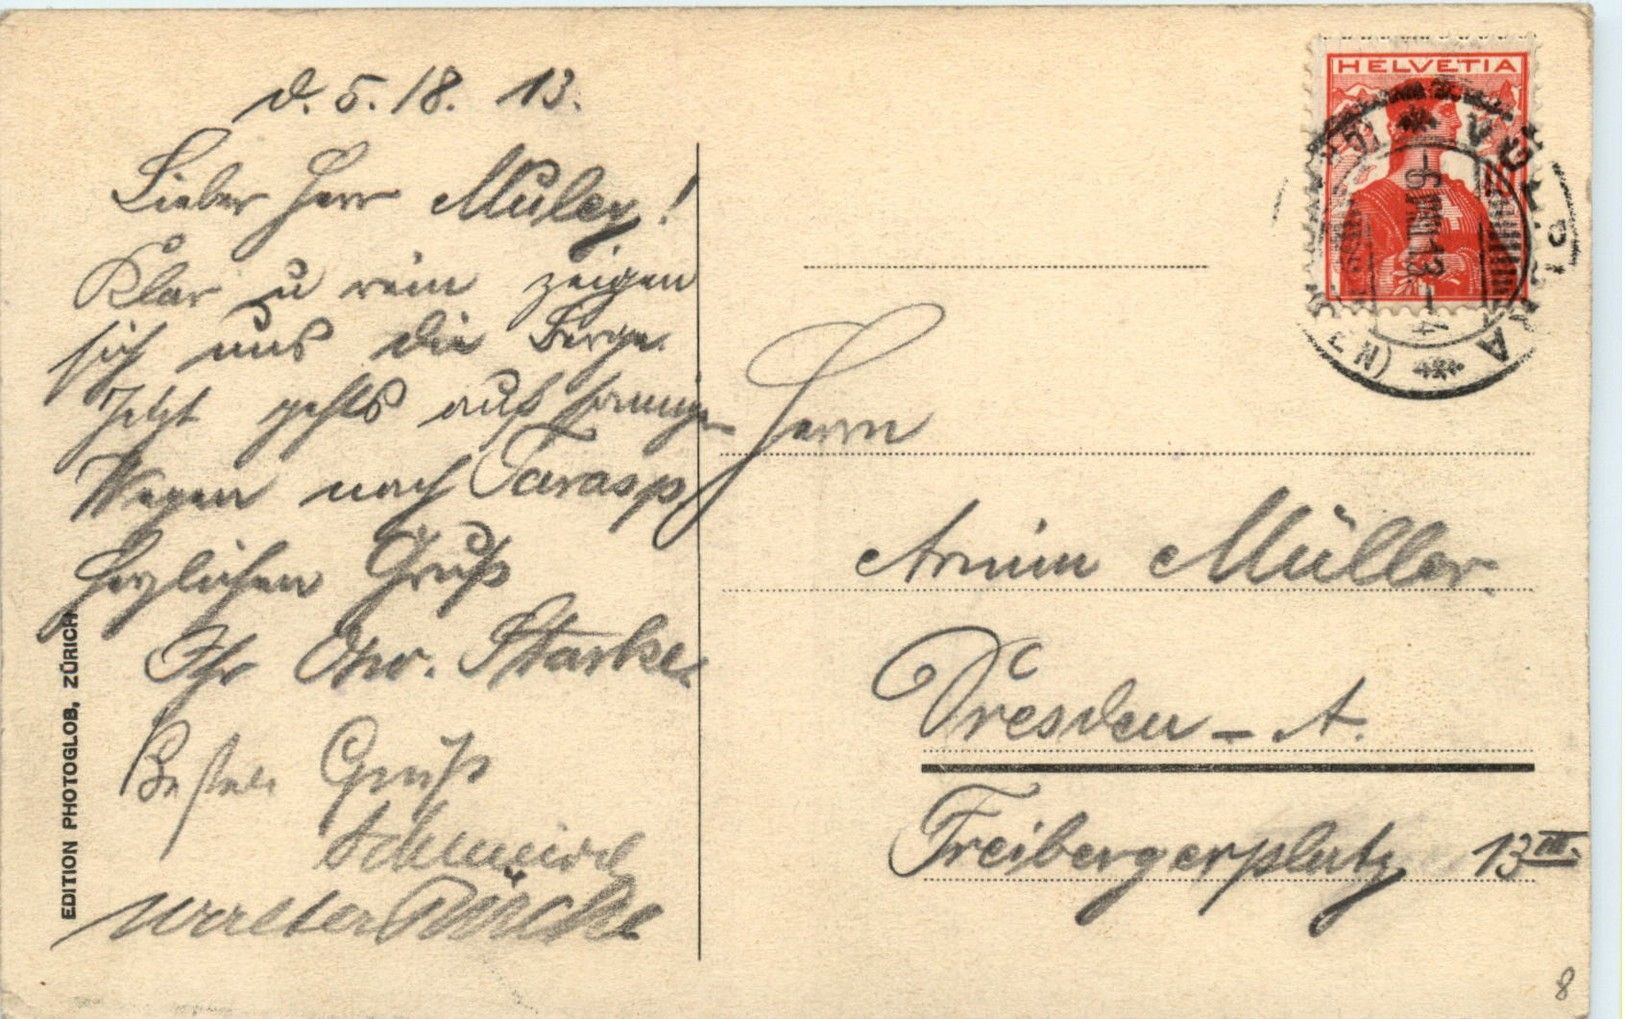 d. 5./8. 13.
Lieber Herr Müller!
Klar u rein zeigen
sich uns die Berge.
Jetzt gehts auf
Wegen nach Tarasp
Herzlichen Gruß
Ihr Starke.
Besten Gruß
Walter
EDITION PHOTOGLOB, ZÜRICH.
HELVETIA
VULPERA
-6.VIII.13.-4
Herrn
Armin Müller.
Dresden - A.
Freibergerplatz 13 III.
8